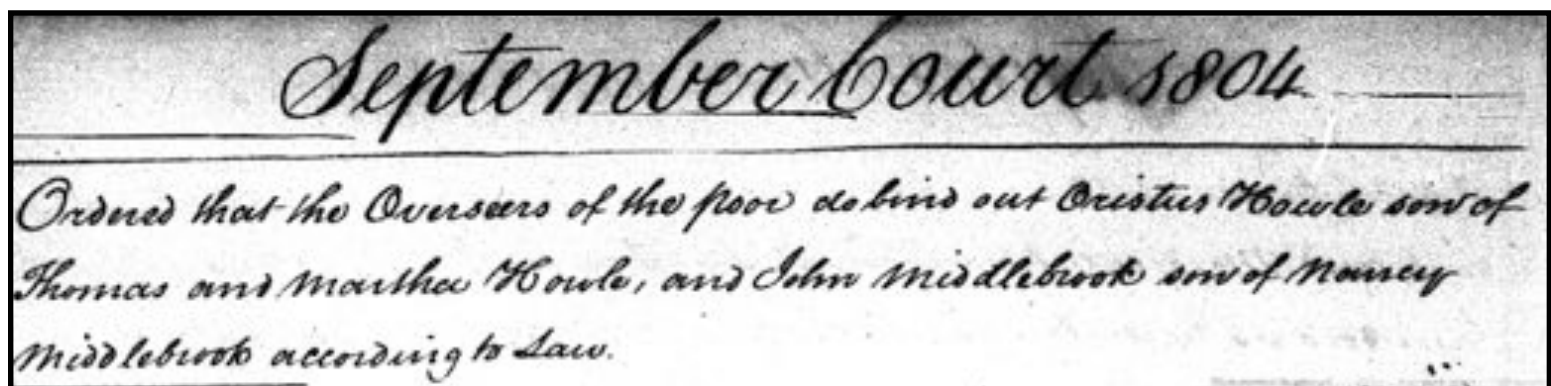 September Court 1804
Ordered that the Overseers of the poor do bind out Oristus Howle son of
Thomas and Martha Howle, and John Middlebrook son of Nancy
Middlebrook according to Law.